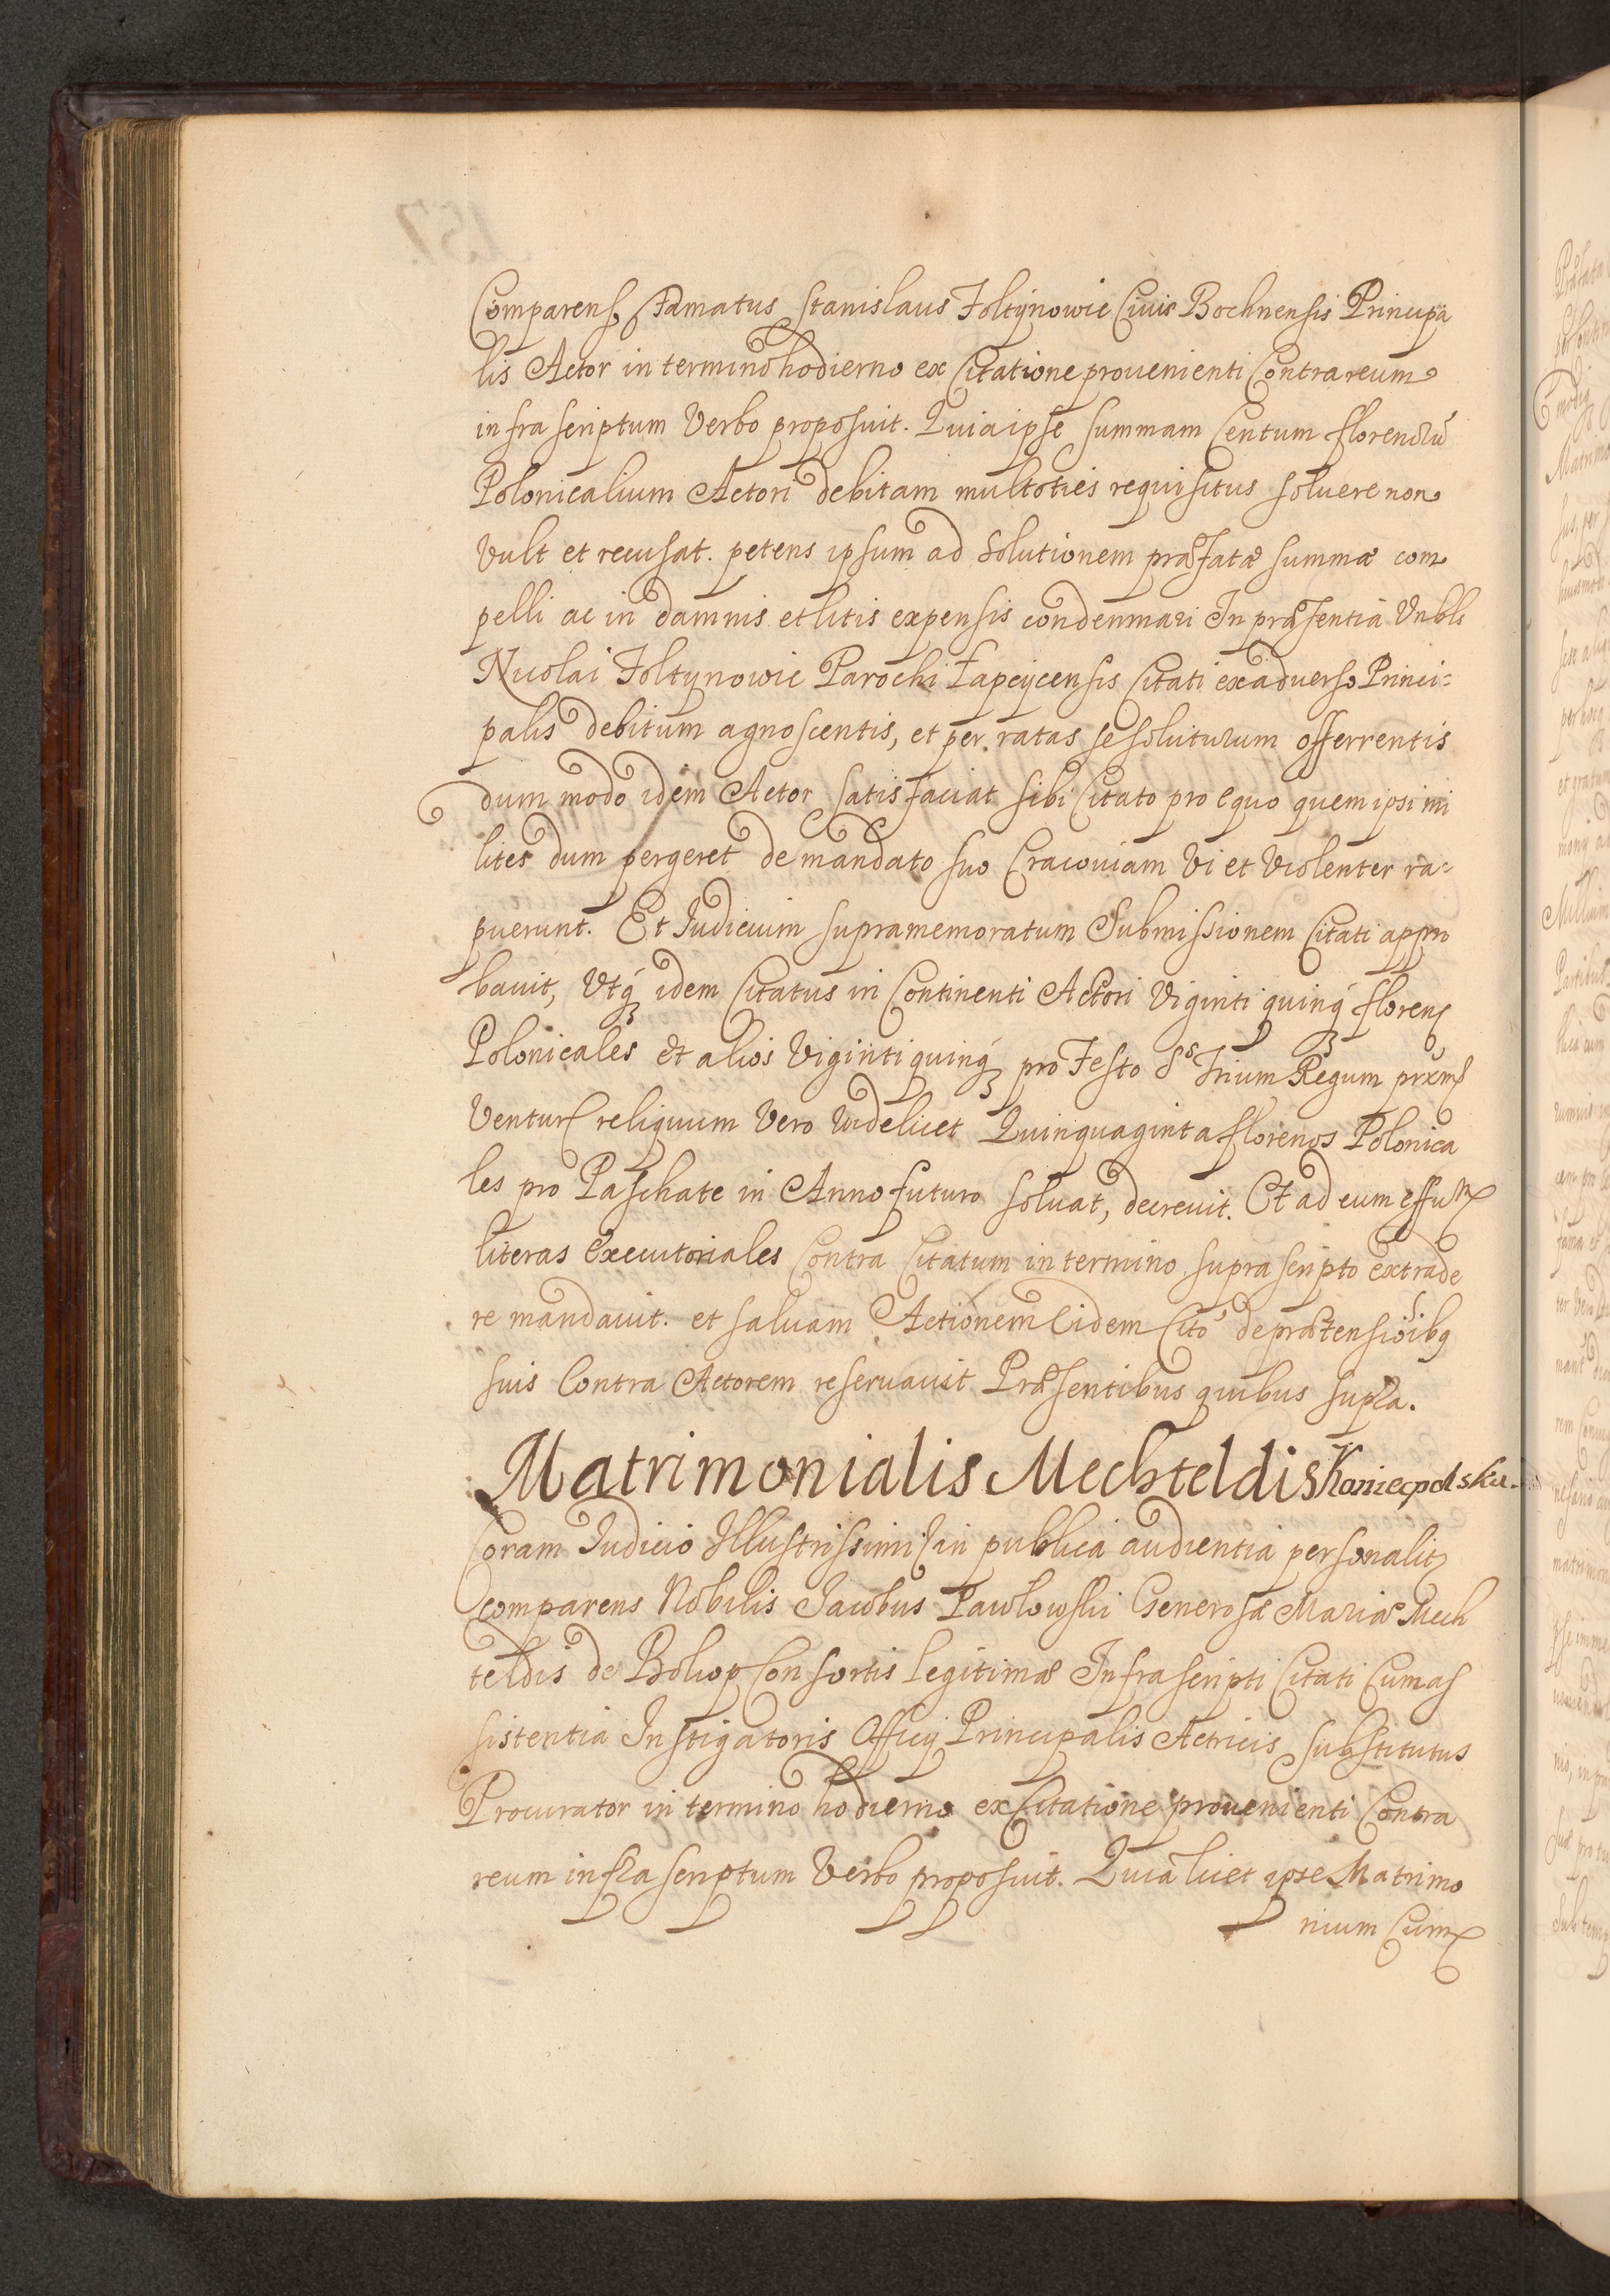 Comparens Famatus Stanislaus Foltynowic Civis Bochnensis Principa
lis Actor in termino hodierno ex Citatione provenienti Contra reum
infra scriptum Verbo proposuit. Quia ipse summam Centum florenorū
Polonicalium Actori debitam multoties requisitus solvere non
Vult et recusat. petens ipsum ad solutionem præfatæ summæ com
pelli ac in damnis et litis expensis condemnari In præsentia Vnbls
Nicolai Foltynowic Parochi Łapcycensis Citati ex adverso Princi=
palis debitum agnoscentis, et per ratas se soluturum offerrentis
dum modo idem Actor satisfaciat sibi Citato pro equo quem ipsi mi
lites dum pergeret de mandato suo Cracoviam Vi et Violenter ra=
puerunt. Et Iudicium supramemoratum Submissionem Citati appro
bavit, Vtq́ idem Citatus in Continenti Actori Viginti quinq́ floren
Polonicales et alios Viginti quinq́ pro Festo Ss Trium Regum prxm
Ventur reliquum Vero videlicet Quinquaginta florenos Polonica
les pro Paschate in Anno futuro solvat, decrevit. Et ad eum effum
literas executoriales Contra Citatum in termino supra scripto extrade
re mandavit. et salvam Actionem Eidem Cito de prætensioibq
suis Contra Actorem reservavit Præsentibus quibus supra.
Matrimonialis Mechteldis Koniecpolska.
Coram Iudicio Illustrissimi in publica audientia personalit
comparens Nobilis Iacobus Pawlowski Generosæ Mariæ Mech
teldis de Consortis legitimæ Infrascripti Citati Cum as
sistentia Instigatoris Officij Principalis Actricis substitutus
Procurator in termino hodierno ex Citatione provenienti Contra
reum infra scriptum Verbo proposuit. Quia licet ipse Matrimo
nium Cum